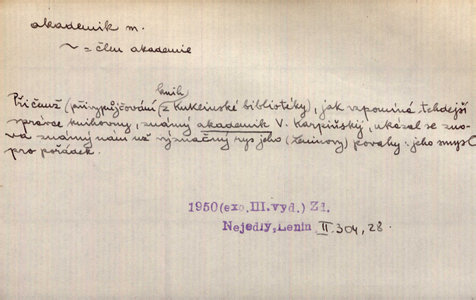 akademik m.
~ = člen akademie
knih
Přičemž (při vypůjčování z Kuklinské biblioteky), jak vzpomíná tehdejší
správce knihovny, známý akademik V. Karpinskij, ukázal se zno-
va známý nám už význačný rys jeho (Leninovy) povahy: jeho smysl
pro pořádek.
1950 (exc. III. vyd.) Zd.
Nejedlý, Lenin II 304, 28.